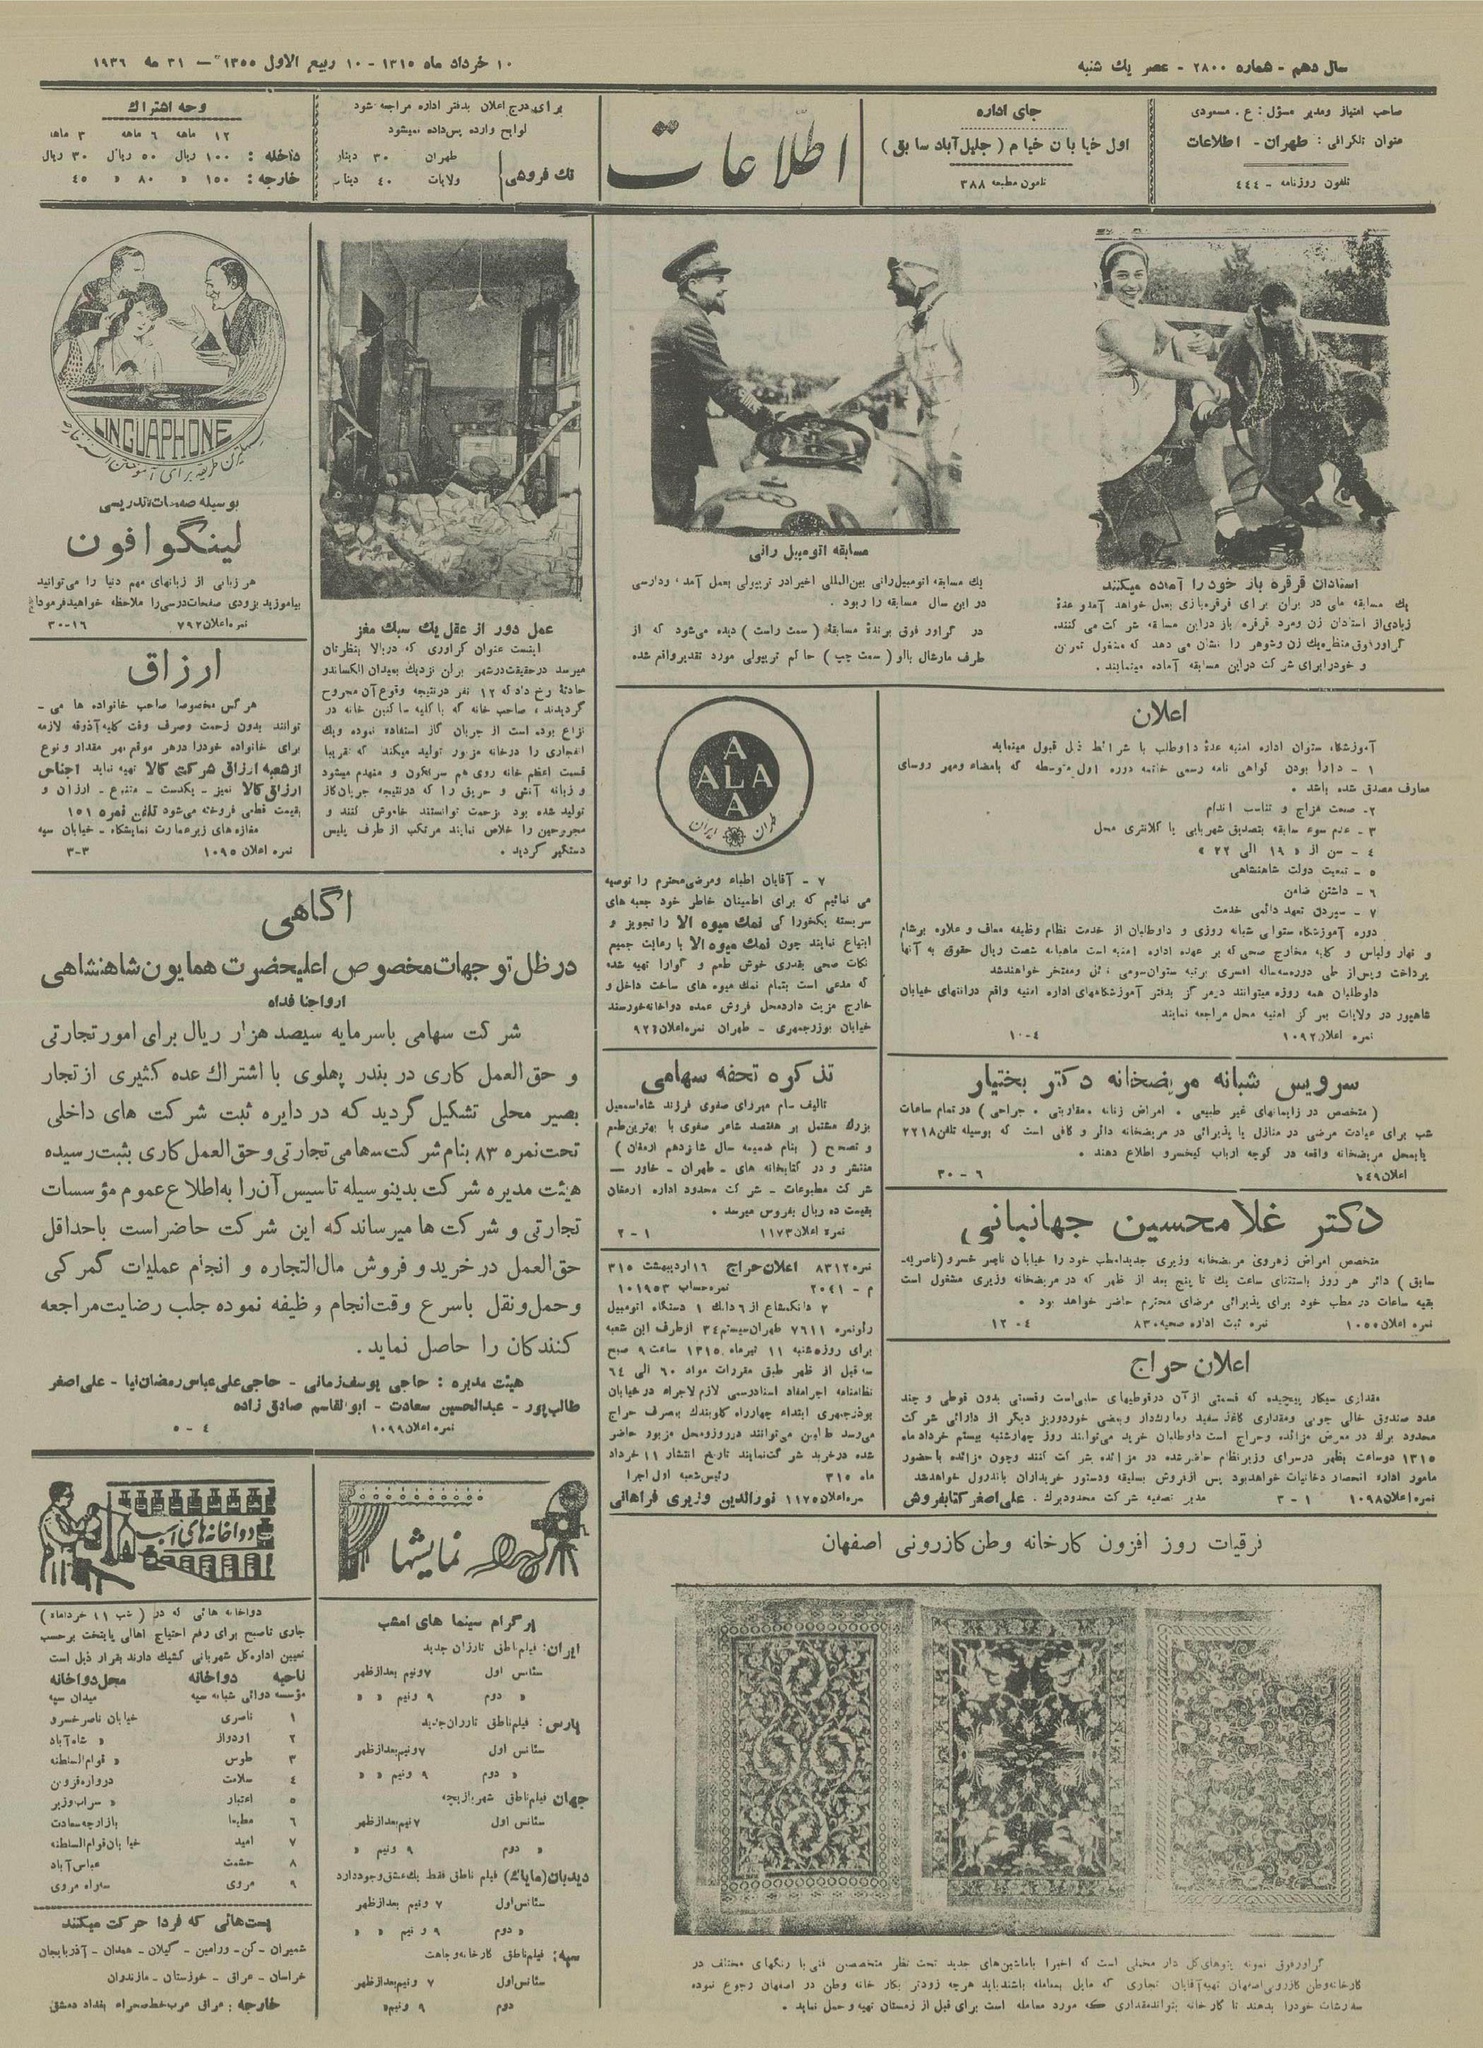 سال دهم - شماره ۲۸۰۰ - عصر یك شنبه
۱۰ خرداد ماه ۱۳۱۵ - ۱۰ ربیع الاول ۱۳۵۵ - ۳۱ مه ۱۹۳۶
صاحب امتیاز ومدیر مسؤل: ع. مسعودی
عنوان تلگرافی: طهران - اطلاعات
تلفون روزنامه - ۴۴۴
جای اداره
اول خیابان خیام (جلیل‌آباد سابق)
تلفون مطبعه ۳۸۸
اطلاعات
برای درج اعلان بدفتر اداره مراجعه شود
لوایح وارده پس‌داده نمیشود
تك فروشی
طهران ۳۰ دینار
ولایات ۴۰ دینار
وجه اشتراك
۱۲ ماهه ۶ ماهه ۳ ماهه
داخله: ۱۰۰ ریال ۵۰ ریال ۳۰ ریال
خارجه: ۱۵۰ » ۸۰ » ۴۵
استادان قرقره باز خود را آماده میکنند
یك مسابقه ملی در برلن برای قرقره‌بازی بعمل خواهد آمد و عدۀ
زیادی از استادان زن ومرد قرقره باز دراین مسابقه شرکت می کنند.
گراور فوق منظره یك زن وشوهر را نشان می دهد که مشغول تمرین
و خود را برای شرکت دراین مسابقه آماده مینمایند.
مسابقه اتومبیل رانی
یك مسابقه اتومبیل‌رانی بین‌المللی اخیراً در تریپولی بعمل آمد، وارسی
در این سال مسابقه را ربود.
در گراور فوق برندۀ مسابقه (سمت راست) دیده می‌شود که از
طرف مارشال بالبو (سمت چپ) حاکم تریپولی مورد تقدیر واقع شده
عمل دور از عقل یك سبك مغز
اینست عنوان گراوری که دربالا بنظرتان
میرسد درحقیقت درشهر برلن نزدیك بمیدان الکساندر
حادثۀ رخ داد که ۱۲ نفر درنتیجه وقوع آن مجروح
گردیدند، صاحب خانه که با کلیه ساکنین خانه در
نزاع بوده است از جریان گاز استفاده نموده ویك
انفجاری را درخانه مزبور تولید میکند که تقریباً
قسمت اعظم خانه روی هم سرنگون و منهدم میشود
و زبانه آتش و حریق را که درنتیجه جریان گاز
تولید شده بود بزحمت توانستند خاموش کنند و
مجروحین را خلاص نمایند مرتکب از طرف پلیس
دستگیر گردید.
LINGUAPHONE
بوسیله صفحات تدریسی
لینگوافون
هر زبانی از زبانهای مهم دنیا را می‌توانید
بیاموزید بزودی صفحات درسی را ملاحظه خواهید فرمود
نمره اعلان ۷۹۲ ۱۶-۳۰
ارزاق
هر کس مخصوصاً صاحب خانواده ها می -
توانند بدون زحمت وصرف وقت کلیه آذوقه لازمه
برای خانواده خود را درهر موقع بهر مقدار و نوع
از شعبه ارزاق شرکت کالا تهیه نماید اجناس
ارزاق کالا تمیز - یکدست - متنوع - ارزان و
بقیمت قطعی فروخته می‌شود تلفن نمره ۱۵۱
مغازه های زیر عمارت نمایشگاه - خیابان سپه
نمره اعلان ۱۰۹۵ ۳-۳
اعلان
آموزشگاه ستوان اداره امنیه عدۀ داوطلب با شرائط ذیل قبول مینماید
۱ - دارا بودن گواهی نامه رسمی خاتمه دوره اول متوسطه که بامضاء ومهر روسای
معارف مصدق شده باشد.
۲ - صحت مزاج و تناسب اندام
۳ - عدم سوء سابقه بتصدیق شهربانی یا کلانتری محل
۴ - سن از «۱۹ الی ۲۲»
۵ - تبعیت دولت شاهنشاهی
۶ - داشتن ضامن
۷ - سپردن تعهد دائمی خدمت
دوره آموزشگاه ستوانی شبانه روزی و داوطلبان از خدمت نظام وظیفه معاف و علاوه برشام
و نهار ولباس و کلیه مخارج صحی که بر عهده اداره امنیه است ماهیانه شصت ریال حقوق به آنها
پرداخت وپس از طی دوره سه‌ساله افسری برتبه ستوان‌سومی نائل ومفتخر خواهند شد
داوطلبان همه روزه میتوانند درمرکز بدفتر آموزشگاههای اداره امنیه واقع درانتهای خیابان
شاهپور در ولایات بمرکز امنیه محل مراجعه نمایند
نمره اعلان ۱۰۹۲ ۴-۱۰
سرویس شبانه مریضخانه دکتر بختیار
(متخصص در زایمانهای غیر طبیعی، امراض زنانه، مقاربتی، جراحی) در تمام ساعات
شب برای عیادت مرضی در منازل یا پذیرائی در مریضخانه دائر و کافی است که بوسیله تلفن ۲۲۱۸
یا بمحل مریضخانه واقعه در کوچه ارباب کیخسرو اطلاع دهند.
۶ - ۳۰
دکتر غلامحسین جهانبانی
متخصص امراض زهروی مریضخانه وزیری جدیداً مطب خود را خیابان ناصر خسرو (ناصریه
سابق) دائر هر روز باستثنای ساعت یك تا پنج بعد از ظهر که در مریضخانه وزیری مشغول است
بقیه ساعات در مطب خود برای پذیرائی مرضای محترم حاضر خواهد بود.
نمره اعلان ۱۰۵۵ نمره ثبت اداره صحیه ۸۳۰ ۴-۱۲
اعلان حراج
مقداری سیگار پیچیده که قسمتی از آن درقوطیهای حلبی است وقسمتی بدون قوطی و چند
عدد صندوق خالی چوبی ومقداری کاغذ سفید ومارك‌دار وبعضی خورده‌ریز دیگر از دارائی شرکت
محدود برك در معرض مزائده وحراج است داوطلبان خرید می‌توانند روز چهارشنبه بیستم خرداد ماه
۱۳۱۵ دوساعت بظهر درسرای وزیرنظام حاضر شده در مزائده شرکت کنند وچون مزائده با حضور
مامور اداره انحصار دخانیات خواهد بود پس از فروش بسلیقه ودستور خریداران باندرول خواهد شد
نمره اعلان ۱۰۹۸ ۱-۳ مدیر تصفیه شرکت محدود برك. علی اصغر کتابفروش
ALA
ALA
طهران ایران
۷ - آقایان اطباء ومرضی محترم را توصیه
می نمائیم که برای اطمینان خاطر خود جعبه های
سربسته یکخوراکی نمك میوه الا را تجویز و
ابتیاع نمایند چون نمك میوه الا با رعایت جمیع
نکات صحی بقدری خوش طعم و گوارا تهیه شده
که مدعی است بتمام نمك میوه های ساخت داخل و
خارج مزیت دارد محل فروش عمده دواخانه خورسند
خیابان بوذرجمهری - طهران نمره اعلان ۹۲۶
تذکره تحفه سامی
تالیف سام میرزای صفوی فرزند شاه‌اسمعیل
بزرگ مشتمل بر هفتصد شاعر صفوی با بهترین طبع
و تصحیح (بنام ضمیمه سال شانزدهم ارمغان)
منتشر و در کتابخانه های - طهران - خاور -
شرکت مطبوعات - شرکت محدود اداره ارمغان
بقیمت ده ریال بفروش میرسد.
نمره اعلان ۱۱۷۳ ۱-۲
نمره ۸۳۱۲ اعلان حراج ۱۶ اردیبهشت ۳۱۵
م - ۲۰۴۱ نمره حساب ۱۰۱۹۵۳
۲ دانك مشاع از ۶ دانك ۱ دستگاه اتومبیل
نمره ۷۶۱۱ طهران سیستم ۳۴ ازطرف این شعبه
برای روز شنبه ۱۱ تیرماه ۱۳۱۵ ساعت ۹ صبح
قبل از ظهر طبق مقررات مواد ۶۰ الی ۶۴
نظامنامه اجرا مفاد اسناد رسمی لازم‌الاجراء در خیابان
بوذرجمهری ابتداء چهارراه گلوبندك بمصرف حراج
می‌رسد طالبین می‌توانند درروز ومحل مزبور حاضر
شده درخرید شرکت نمایند تاریخ انتشار ۱۱ خرداد
ماه ۳۱۵ رئیس شعبه اول اجرا
نمره اعلان ۱۱۷۵ نورالدین وزیری فراهانی
آگاهی
در ظل توجهات مخصوص اعلیحضرت همایون شاهنشاهی
ارواحنا فداه
شرکت سهامی باسرمایه سیصد هزار ریال برای امور تجارتی
و حق‌العمل کاری در بندر پهلوی با اشتراك عده کثیری از تجار
بصیر محلی تشکیل گردید که در دایره ثبت شرکت های داخلی
تحت نمره ۸۳ بنام شرکت سهامی تجارتی و حق‌العمل کاری بثبت رسیده
هیئت مدیره شرکت بدینوسیله تاسیس آن را به‌اطلاع عموم مؤسسات
تجارتی و شرکت ها میرساند که این شرکت حاضر است باحداقل
حق‌العمل در خرید و فروش مال‌التجاره و انجام عملیات گمرکی
وحمل ونقل باسرع وقت انجام وظیفه نموده جلب رضایت مراجعه
کنندگان را حاصل نماید.
هیئت مدیره: حاجی یوسف زمانی - حاجی علی عباس رمضان‌نیا - علی اصغر
طالب‌پور - عبدالحسین سعادت - ابوالقاسم صادق زاده
نمره اعلان ۱۰۹۹ ۴-۵
نمایشها
پرگرام سینما های امشب
ایران: فیلم ناطق تارزان جدید
سئانس اول ۷ ونیم بعدازظهر
» دوم ۹ ونیم » »
پارس: فیلم ناطق تارزان جدید
سئانس اول ۷ ونیم بعدازظهر
» دوم ۹ ونیم » »
جهان فیلم ناطق شهر بازیچه
سئانس اول ۷ ونیم بعدازظهر
» دوم ۹ ونیم »
دیدبان (مایاك) فیلم ناطق فقط یك عشق وجود دارد
سئانس اول ۷ ونیم بعدازظهر
» دوم ۹ ونیم » »
سپه: فیلم ناطق کارخانه وجاهت
سئانس اول ۷ ونیم بعدازظهر
دوم ۹ ونیم »
دواخانه‌های شب
دواخانه هائی که در (شب ۱۱ خرداد ماه)
جاری تا صبح برای رفع احتیاج اهالی پایتخت برحسب
تعیین اداره کل شهربانی کشیك دارند بقرار ذیل است
ناحیه دواخانه محل دواخانه
مؤسسه دوائی شبانه سپه میدان سپه
۱ ناصری خیابان ناصر خسرو
۲ ادوارد » شاه آباد
۳ طوس » قوام‌السلطنه
۴ سلامت دروازه قزوین
۵ اعتبار » سراب وزیر
۶ بازارچه سعادت
۷ امید خیابان قوام‌السلطنه
۸ حشمت عباس آباد
۹ مروی سه‌راه مروی
پست‌هائی که فردا حرکت میکنند
شمیران - کن - ورامین - گیلان - همدان - آذربایجان
خراسان - عراق - خوزستان - مازندران
خارجه: عراق عرب خط صحراء بغداد دمشق
ترقیات روز افزون کارخانه وطن کازرونی اصفهان
گراور فوق نمونه پتوهای گل دار مخملی است که اخیراً با ماشین‌های جدید تحت نظر متخصصین فنی با رنگهای مختلف در
کارخانه وطن کازرونی اصفهان تهیه آقایان تجاری که مایل بمعامله باشند باید هرچه زودتر بکارخانه وطن در اصفهان رجوع نموده
سفارشات خود را بدهند تا کارخانه بتواند مقداری که مورد معامله است برای قبل از زمستان تهیه و حمل نماید.